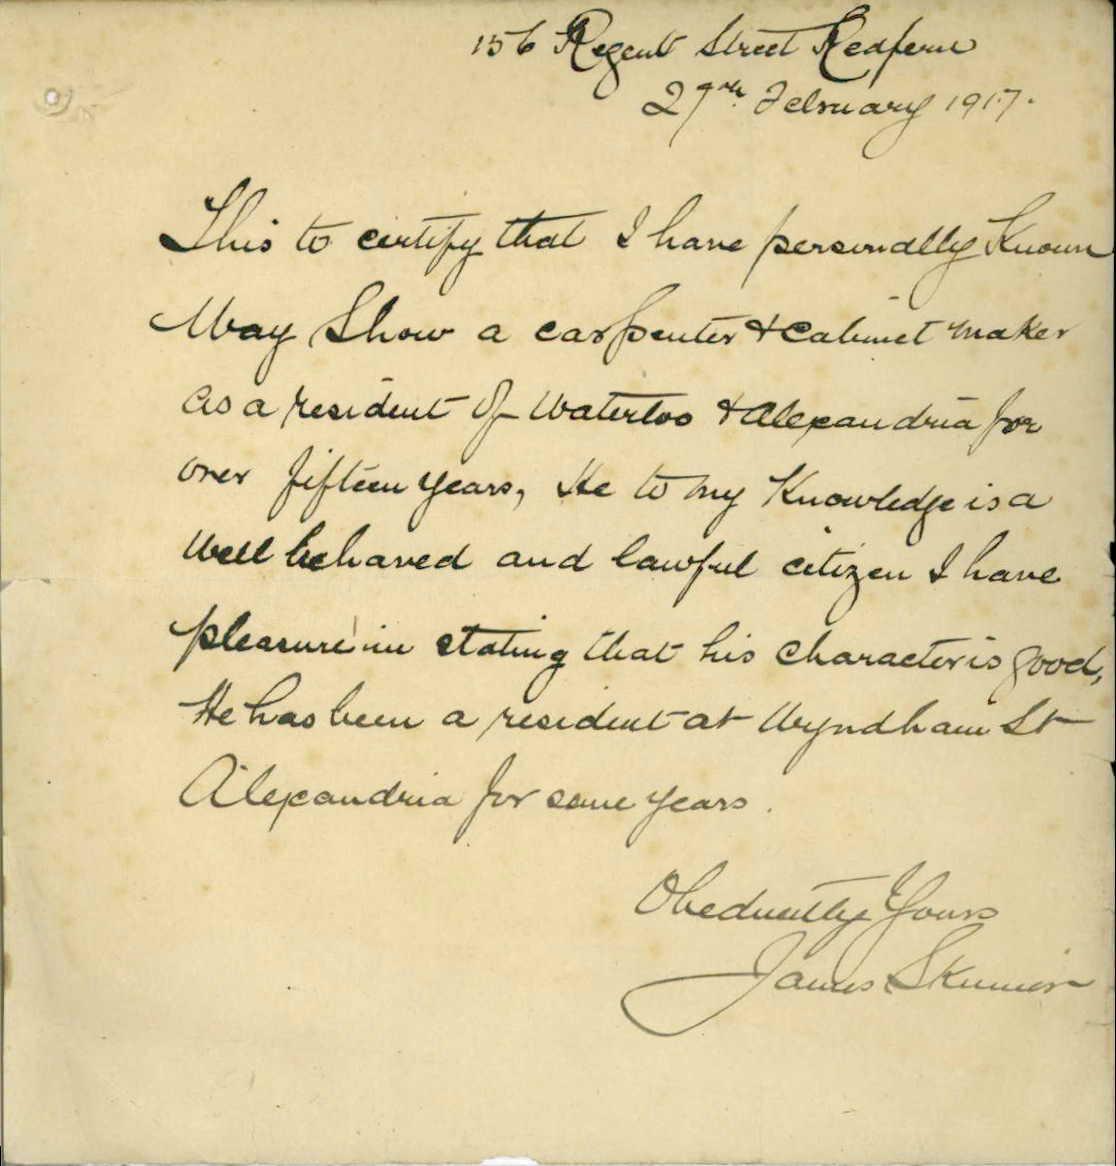 156 Regent Street Redfern
27th. February 1917.
This to certify that I have personally Known
Way Show a carpenter & Cabinet maker
as a resident of Waterloo & Alexandria for
over fifteen years, He to my Knowledge is a
Well behaved and lawful citizen I have
pleasure in stating that his character is good,
He has been a resident at Wyndham St
Alexandria for some years.
Obediently Yours
James Skinner